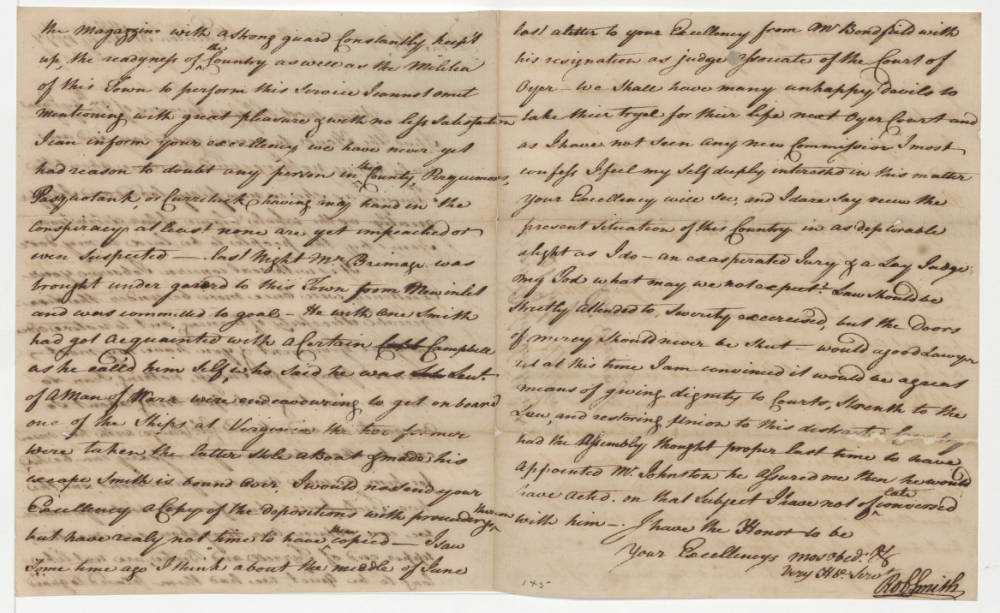 the Magazine with a strong guard Constantly kept
up, the readyness of the Country as well as the Militia
of this Town to perform this Service I cannot omit
mentioning with great pleasure & with no less Satisfaction
I can inform your excellency we have never yet
had reason to doubt any person in this County, Perquimons,
Pasquotank, or Currituck having may hand in the
Conspiracy at least none are yet impeached or
even Suspected — last Night Mr Brimage was
brought under guard to this Town from New inlet
and was committed to goal — He with one Smith
had got acquainted with a Certain Campbell
as he called him Self, who Said he was Lieut.
of a Man of Warr were endeavouring to get on board
one of the Ships at Virginia the two former
were taken the latter stole a Boat & made his
escape Smith is bound over. I would now send your
Excellency a Copy of the depositions with proceedings thereon
but have realy not time to have them copied — I saw
Some time ago I think about the middle of June
last a letter to your Excellency from Mr Bondfield with
his resignation as judge associate of the Court of
Oyer — we Shall have many unhappy devils to
take their tryal for their life next Oyer Court and
as I have not Seen any new Commission I most
confess I feel my Self deeply interested in this matter
your Excellency will See, and I dare Say view the
present Situation of this Country in as deplorable
alight as I do — an exasperated Jury & a Lay Judge
my God what may we not expect? Law Should be
strictly attended to, Severity exercised, but the Doors
of mercy Should never be Shut — would a good Lawyer
at this time I am convinced it would be a great
means of giving dignity to Courts, Strenth to the
Law, and restoring to this
had the Assembly thought proper last time to have
appointed Mr. Johnston he assured me then he would
have acted. on that Subject I have not of late conversed
with him —. I have the Honor to be
Your Excellencys mos obed. &
Very H'e Serv
Rob Smith
145